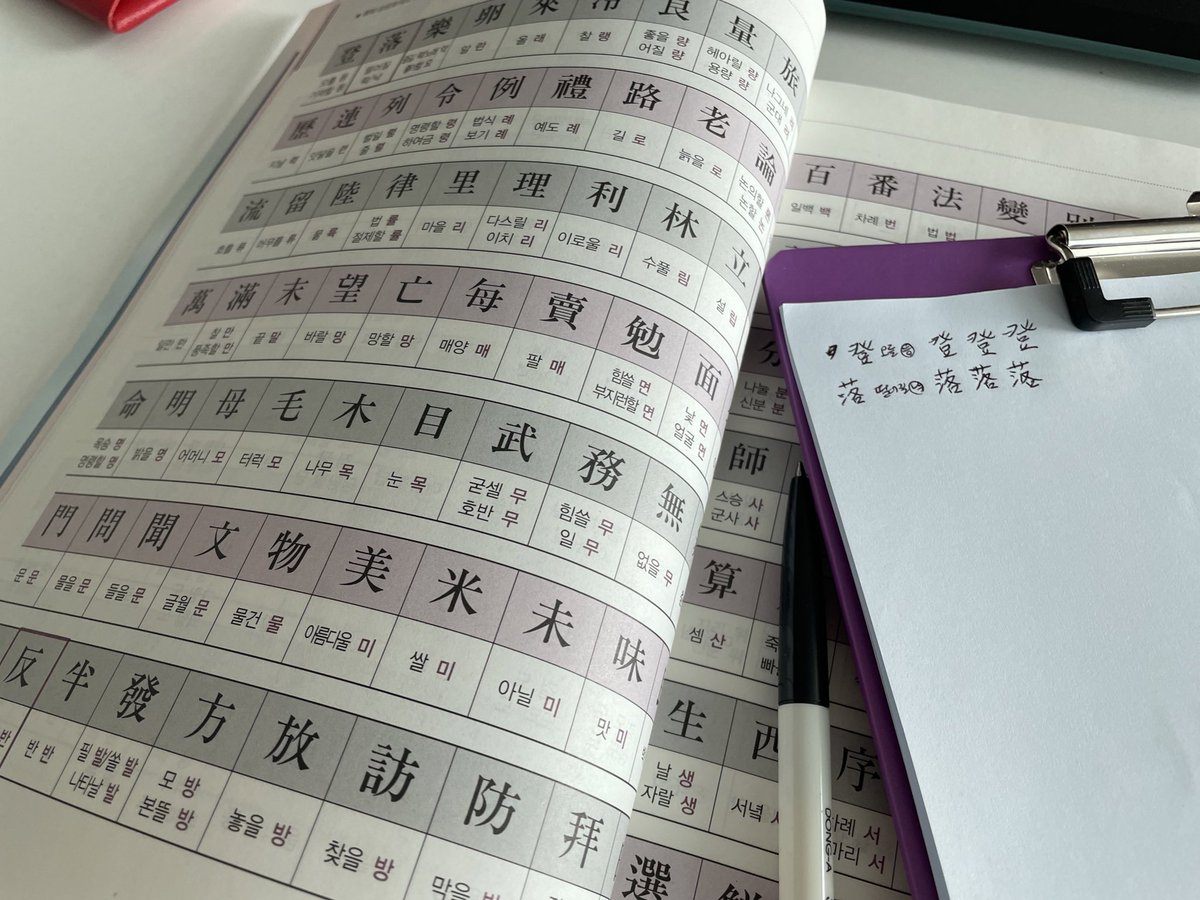 登 落 樂 卵 來 冷 良 量 旅
알 란 올 래 찰 랭 좋을 량 헤아릴 량 나그네
어질 량 용량 량 군대
歷 連 列 令 例 禮 路 老 論
지날 력 벌일 렬 명령할 령 법식 례 예도 례 길 로 늙을 로 논의할
줄 렬 하여금 령 보기 례 논할
流 留 陸 律 里 理 利 林 立
흐를 류 머무를 류 뭍 륙 법 률 마을 리 다스릴 리 이로울 리 수풀 림 설 립
절제할 률 이치 리
萬 滿 末 望 亡 每 賣 勉 面
일만 만 찰 만 끝 말 바랄 망 망할 망 매양 매 팔 매 힘쓸 면 낯 면
만족할 만 부지런할 면 얼굴 면
命 明 母 毛 木 目 武 務 無
목숨 명 밝을 명 어머니 모 터럭 모 나무 목 눈 목 굳셀 무 힘쓸 무 없을 무
명령할 명 호반 무 일 무
門 問 聞 文 物 美 米 未 味
문 문 물을 문 들을 문 글월 문 물건 물 아름다울 미 쌀 미 아닐 미 맛 미
反 半 發 方 放 訪 防 拜
반 반 필 발/쏠 발 모 방 놓을 방 찾을 방 막을
나타날 발 본뜰 방
百 番 法 變
일백 백 차례 번 법 법
分
나눌 분
신분 분
師
스승 사
군사 사
算
셈 산
生 西 序
날 생 서녘 차례 서
자랄 생 서
選
登 登 登 登
落 落 落 落